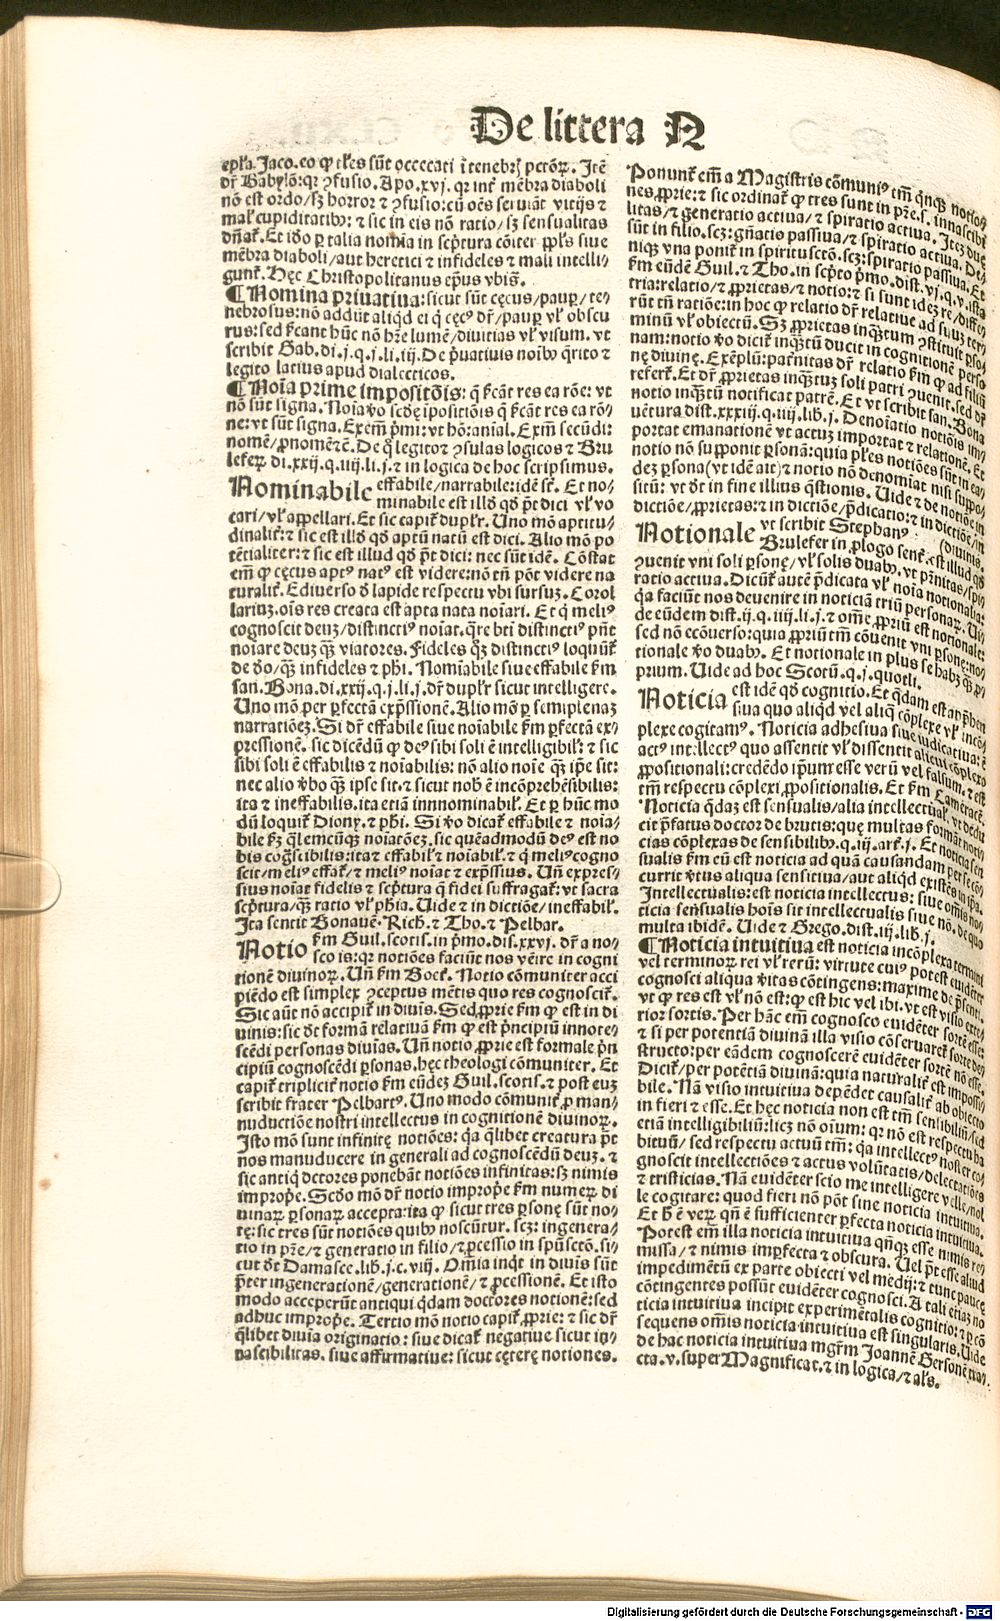 De littera N
epła. Jaco. eo ꝙ tłes sūt occecati ī tenebrꝭ pctōꝝ. Itē
dr̄ Babylō: qꝛ ꝯfusio. Apo. xvj. qꝛ int̄ mēbra diaboli
nō est ordo/ sꝫ horror ⁊ ꝯfusio: cū oēs seruiāt vitijs ⁊
mał cupiditatibꝰ: ⁊ sic in eis nō ratio/ sꝫ sensualitas
dn̄at̄. Et iḋo ꝑ talia nomīa in scṗtura cōiter ppłs siue
mēbra diaboli/ aut heretici ⁊ infideles ⁊ mali intelli/
gunt̄. Hęc Christopolitanus ep̄us vbis̄.
¶ Nomina priuatiua: sicut sūt cęcus/ pauꝑ/ te/
nebrosus: nō addūt aliqd ei q̇ cęcꝰ dr̄/ pauꝑ vł obscu
rus: sed ſcant hūc nō hr̄e lumē/ diuitias vł visum. vt
scribit Gab. di. j. q. j. li. iij. De p̄uatiuis noībꝰ q̄rito ⁊
legito latius apud dialecticos.
¶ Noīa prime impositōis: q̄ ſcāt res ea rōe: vt
nō sūt signa. Noīa v̇o scḋę īpositiōis q̄ ſcāt res ea rō/
ne: vt sūt signa. Exem̄ p̄mi: vt hō: aīal. Exm̄ secūdi:
nomē/ ꝓnomē ⁊c̄. De q̇ legitor ⁊ ꝯsulas logicos ⁊ Bru
leferꝝ di. xxij. q. iiij. li. j. ⁊ in logica de hoc scripsimus.
Nominabile effabile/ narrabile: idē st̄. Et no/
minabile est illḋ qḋ p̄t dici vł vo
cari/ vł appellari. Et sic capit̄ duplr̄. Uno mō aptitu/
dinalit̄: ⁊ sic est illḋ qḋ aptū natū est dici. Alio mō po
tētialiter: ⁊ sic est illud qḋ p̄t dici: nec sūt idē. Cōstat
em̄ ꝙ cęcus aptꝰ natꝰ est videre: nō tn̄ pōt videre na
turalit̄. Ediuerso ḋ lapide respectu vbi sursuꝫ. Corol
lariuꝫ. oīs res creata est apta nata noīari. Et q̇ meliꝰ
cognoscit deuꝫ/ distinctiꝰ noīat. q̄re bt̄i distinctiꝰ pn̄t
noīare deuꝫ qꝫ̄ viatores. Fideles qꝫ distinctiꝰ loquūt̄
de ḋo/ qꝫ̄ infideles ⁊ phi. Nomīabile siue effabile ẜm
san. Bona. di. xxij. q. j. li. j. dr̄ duplr̄ sicut intelligere.
Uno mō ꝑ ꝑfectā exp̄ssionē. Alio mō ꝑ semiplenaꝫ
narratiōeꝫ. Si dr̄ effabile siue noīabile ẜm ꝑfectā ex/
pressionē. sic dicēdū ꝙ deꝰ sibi soli ē intelligibił: ⁊ sic
sibi soli ē effabilis ⁊ noīabilis: nō alio noīe qꝫ̄ ip̄e sit:
nec alio v̇bo qꝫ̄ ipse sit. ⁊ sicut nob̄ ē incōprehēsibilis:
ita ⁊ ineffabilis. ita etiā innnominabił. Et ꝑ hūc mo
dū loquit̄ Dionꝫ. ⁊ phi. Si v̇o dicat̄ effabile ⁊ noīa/
bile ẜꝫ q̄lemcūqꝫ noīatōeꝫ. sic quēadmodū deꝰ est no
bis cog̊scibilis: ita ⁊ effabił ⁊ noīabił. ⁊ q̇ meliꝰ cogno
scit/ meliꝰ effat̄/ ⁊ meliꝰ noīat ⁊ exp̄ssius. Un̄ expres/
sius noīat fidelis ⁊ scṗtura q̄ fidei suffragat̄: vt sacra
scṗtura/ qꝫ̄ ratio vł phīa. Uide ⁊ in dictiōe/ ineffabił.
Ita sentit Bonauē. Rich. ⁊ Tho. ⁊ Pelbar.
Notio ẜm Guil. scotis. in p̄mo. dis. xxvj. dr̄ a no/
sco is: qꝛ notiōes faciūt nos v̄eire in cogni
tionē diuinoꝝ. Un̄ ẜm Bock. Notio cōmuniter acci
piēdo est simplex ꝯceptus mētis quo res cognoscit̄.
Sic aūt nō accipit̄ in diuīs. Sed ꝓprie ẜm ꝙ est in di
uinis: sic ḋt formā relatiuā ẜm ꝙ est p̄ncipiū innote/
scēdi personas diuīas. Un̄ notio ꝓprie est formale p̄n
cipiū cognoscēdi ꝑsonas. hęc theologi cōmuniter. Et
capit̄ triplicit̄ notio ẜm eūdeꝫ Guil. scotis. ⁊ post euꝫ
scribit frater Pelbartꝰ. Uno modo cōmunit̄ ꝓ man/
nuductiōe nostri intellectus in cognitionē diuinoꝝ.
Isto mō sunt infinitę notiōes: q̇a q̄libet creatura p̄t
nos manuducere in generali ad cognoscēdū deuꝫ. ⁊
sic antiq̇ dctores ponebāt notiōes infinitas: sꝫ nimis
improṗe. Scḋo mō dr̄ notio improṗe ẜm numeꝝ di
uinaꝝ ꝑsonaꝝ accepta: ita ꝙ sicut tres ꝑsonę sūt no/
tę: sic tres sūt notiōes quibꝰ noscūtur. scꝫ: ingenera/
tio in pr̄e/ ⁊ generatio in filio/ ⁊ ꝓcessio in spūsctō. si/
cut ḋt Damasce. lib. j. c. viij. Om̄ia inq̇t in diuīs sūt
p̄ter ingenerationē/ generationē/ ⁊ ꝓcessionē. Et isto
modo acceperūt antiqui q̇dam doctores notionē: sed
adhuc improṗe. Tertio mō notio capit̄ ꝓprie: ⁊ sic dr̄
q̄libet diuīa originatio: siue dicat̄ negatiue sicut in/
nascibilitas. siue affirmatiue: sicut cęterę notiones.
Ponunt̄ em̄ a Magistris cōmuniꝰ em̄ q̇nqꝫ notio/
nes ꝓprie: ⁊ sic ordinat̄ ꝙ tres sunt in pr̄e. s. innascibi
litas/ ⁊ generatio actiua/ ⁊ spiratio actiua. Iteꝫ duę
sūt in filio. scꝫ: gn̄atis passiua/ ⁊ spiratio actiua. De/
niqꝫ vna ponit̄ in spirituscō. scꝫ: spiratio passiua. Et
ẜm eūdē Guil. ⁊ Tho. in scṗto p̄mo. dist. vj. q. v. ista
tria: relatio/ ⁊ ꝓprietas/ ⁊ notio: ⁊ si sunt idēꝫ re/ differ
rūt tn̄ ratiōe: in hoc ꝙ relatio dr̄ relatiue ad suuꝫ ter/
minū vł obiectū. Sꝫ ꝓprietas inqꝫ̄tum ꝯstituit ꝑso/
nam: notio v̇o dicit̄ inqꝫ̄tū ducit in cognitionē perso
nę diuinę. Exēplū: pat̄nitas dr̄ relatio ẜm ꝙ ad filiū
refert̄. Et dr̄ ꝓprietas inqꝫ̄tuꝫ soli patri ꝯuenit. sed dr̄
notio inqꝫ̄tū notificat patrē. Et vt scribit san. Bona
uētura dist. xxxiij. q. iiij. lib. j. Denoīatio notiōis im/
portat emanationē vt actuꝫ importat ⁊ relationē. Et
notio nō supponit ꝑsonā: quia płes notiōes sūt in ea/
deꝫ ꝑsona (vt idē ait) ⁊ notio nō denomīat nisi suppo/
sitū: vt ḋt in fine illius q̄stionis. Uide ⁊ de notiōe in
dictiōe/ ꝓprietas: ⁊ in dictiōe/ p̄dicatio: ⁊ in dictiōe/ in
Notionale vt scribit Stephanꝰ (diuinis.
Brulefer in ꝓlogo sent̄. est illud qḋ
ꝯuenit vni soli ꝑsonę/ vł solis duabꝰ. vt p̄nitas/ spi/
ratio actiua. Dicūt̄ autē p̄dicata vł noīa notionalia:
q̇a faciūt nos deuenire in noticiā triū personaꝝ. Un̄
de eūdem dist. ij. q. iiij. li. j. ⁊ om̄e ꝓpriū est notionale:
sed nō ecōuerso: quia ꝓpriū tm̄ cōuenit vni ꝑsonę: no/
tionale v̇o duabꝰ. Et notionale in plus se habꝫ qꝫ̄ ꝓ/
prium. Uide ad hoc Scotū. q. j. quotli.
Noticia est idē qḋ cognitio. Et q̇dam est appꝛ̄hen
siua quo aliqd vel aliq̇ cōplexe vł incō/
plexe cogitamꝰ. Noticia adhesiua siue iudicatiua: ē
actꝰ intellectꝰ quo assentit vł dissentit alicui cōplexo
ꝓpositionali: credēdo ip̄um esse verū vel falsum. ⁊ est
tm̄ respectu cōplexi ꝓpositionalis. Et ẜm Camerace.
Noticia q̄daꝫ est sensualis/ alia intellectual̄. vt dedu
cit p̄fatus doctor de brutis: quę multas formāt noti/
cias cōplexas de sensibilibꝰ. q. iij. art̄. j. Et noticia sen
sualis ẜm eū est noticia ad quā causandam per se cō/
currit v̇tus aliqua sensitiua/ aut aliqd existēs in ip̄a.
Intellectualis: est noticia intellectus: siue om̄is no/
ticia sensualis hoīs sit intellectualis siue nō. de quo
multa ibidē. Uide ⁊ Grego. dist. iij. lib. j.
¶ Noticia intuitiua est noticia incōplexa termini
vel terminoꝝ rei vł rerū: virtute cuiꝰ potest euidēter
cognosci aliqua v̇itas cōtingens: maxime de p̄senti.
vt ꝙ res est vł nō est: ꝙ est hic vel ibi. vt est visio exte/
rior sortis. Per hāc em̄ cognosco euidēter sortē esse:
⁊ si per potentiā diuinā illa visio cōseruaret̄ sorte de/
structo: per eādem cognoscerē euidēter sortē nō esse.
Dicit̄/ per potētiā diuinā: quia naturalit̄ est impossi/
bile. Nā visio intuitiua depēdet causalit̄ ab obiecto
in fieri ⁊ esse. Et hęc noticia non est tm̄ sensibiliū/ sed
etiā intelligibiliū: licꝫ nō oīum: qꝛ nō est respectu ha
bituū/ sed respectu actuū tm̄: q̇a intellectꝰ noster co/
gnoscit intellectiōes ⁊ actus volūtatis/ delectatiōis
⁊ tristicias. Nā euidēter scio me intelligere velle/ nol
le cogitare: quod fieri nō pōt sine noticia intuitiua.
Et b̄ ē veꝝ qn̄ ē sufficienter ꝑfecta noticia intuitiua.
Potest em̄ illa noticia intuitiua qn̄qꝫ esse nimis re/
missa/ ⁊ nimis imꝑfecta ⁊ obscura. Uel p̄t esse aliud
impedimētū ex parte obiecti vel medij: ⁊ tunc paucę
cōtingentes possūt euidēter cognosci. A tali etiaꝫ no
ticia intuitiua incipit experimētalis cognitio: ⁊ ꝑ cō
sequens om̄is noticia intuitiua est singularis. Uide
de hac noticia intuitiua mgr̄m Joannē Gersonē tra/
cta. v. super Magnificat. ⁊ in logica/ ⁊ ał̄s.
Digitalisierung gefördert durch die Deutsche Forschungsgemeinschaft - DFG